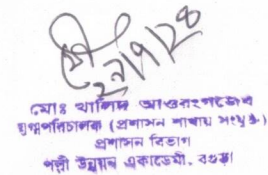 মোঃ খালিদ আওরংগজেব
যুগ্মপরিচালক (প্রশাসন শাখায় সংযুক্ত)
প্রশাসন বিভাগ
পল্লী উন্নয়ন একাডেমী, বগুড়া